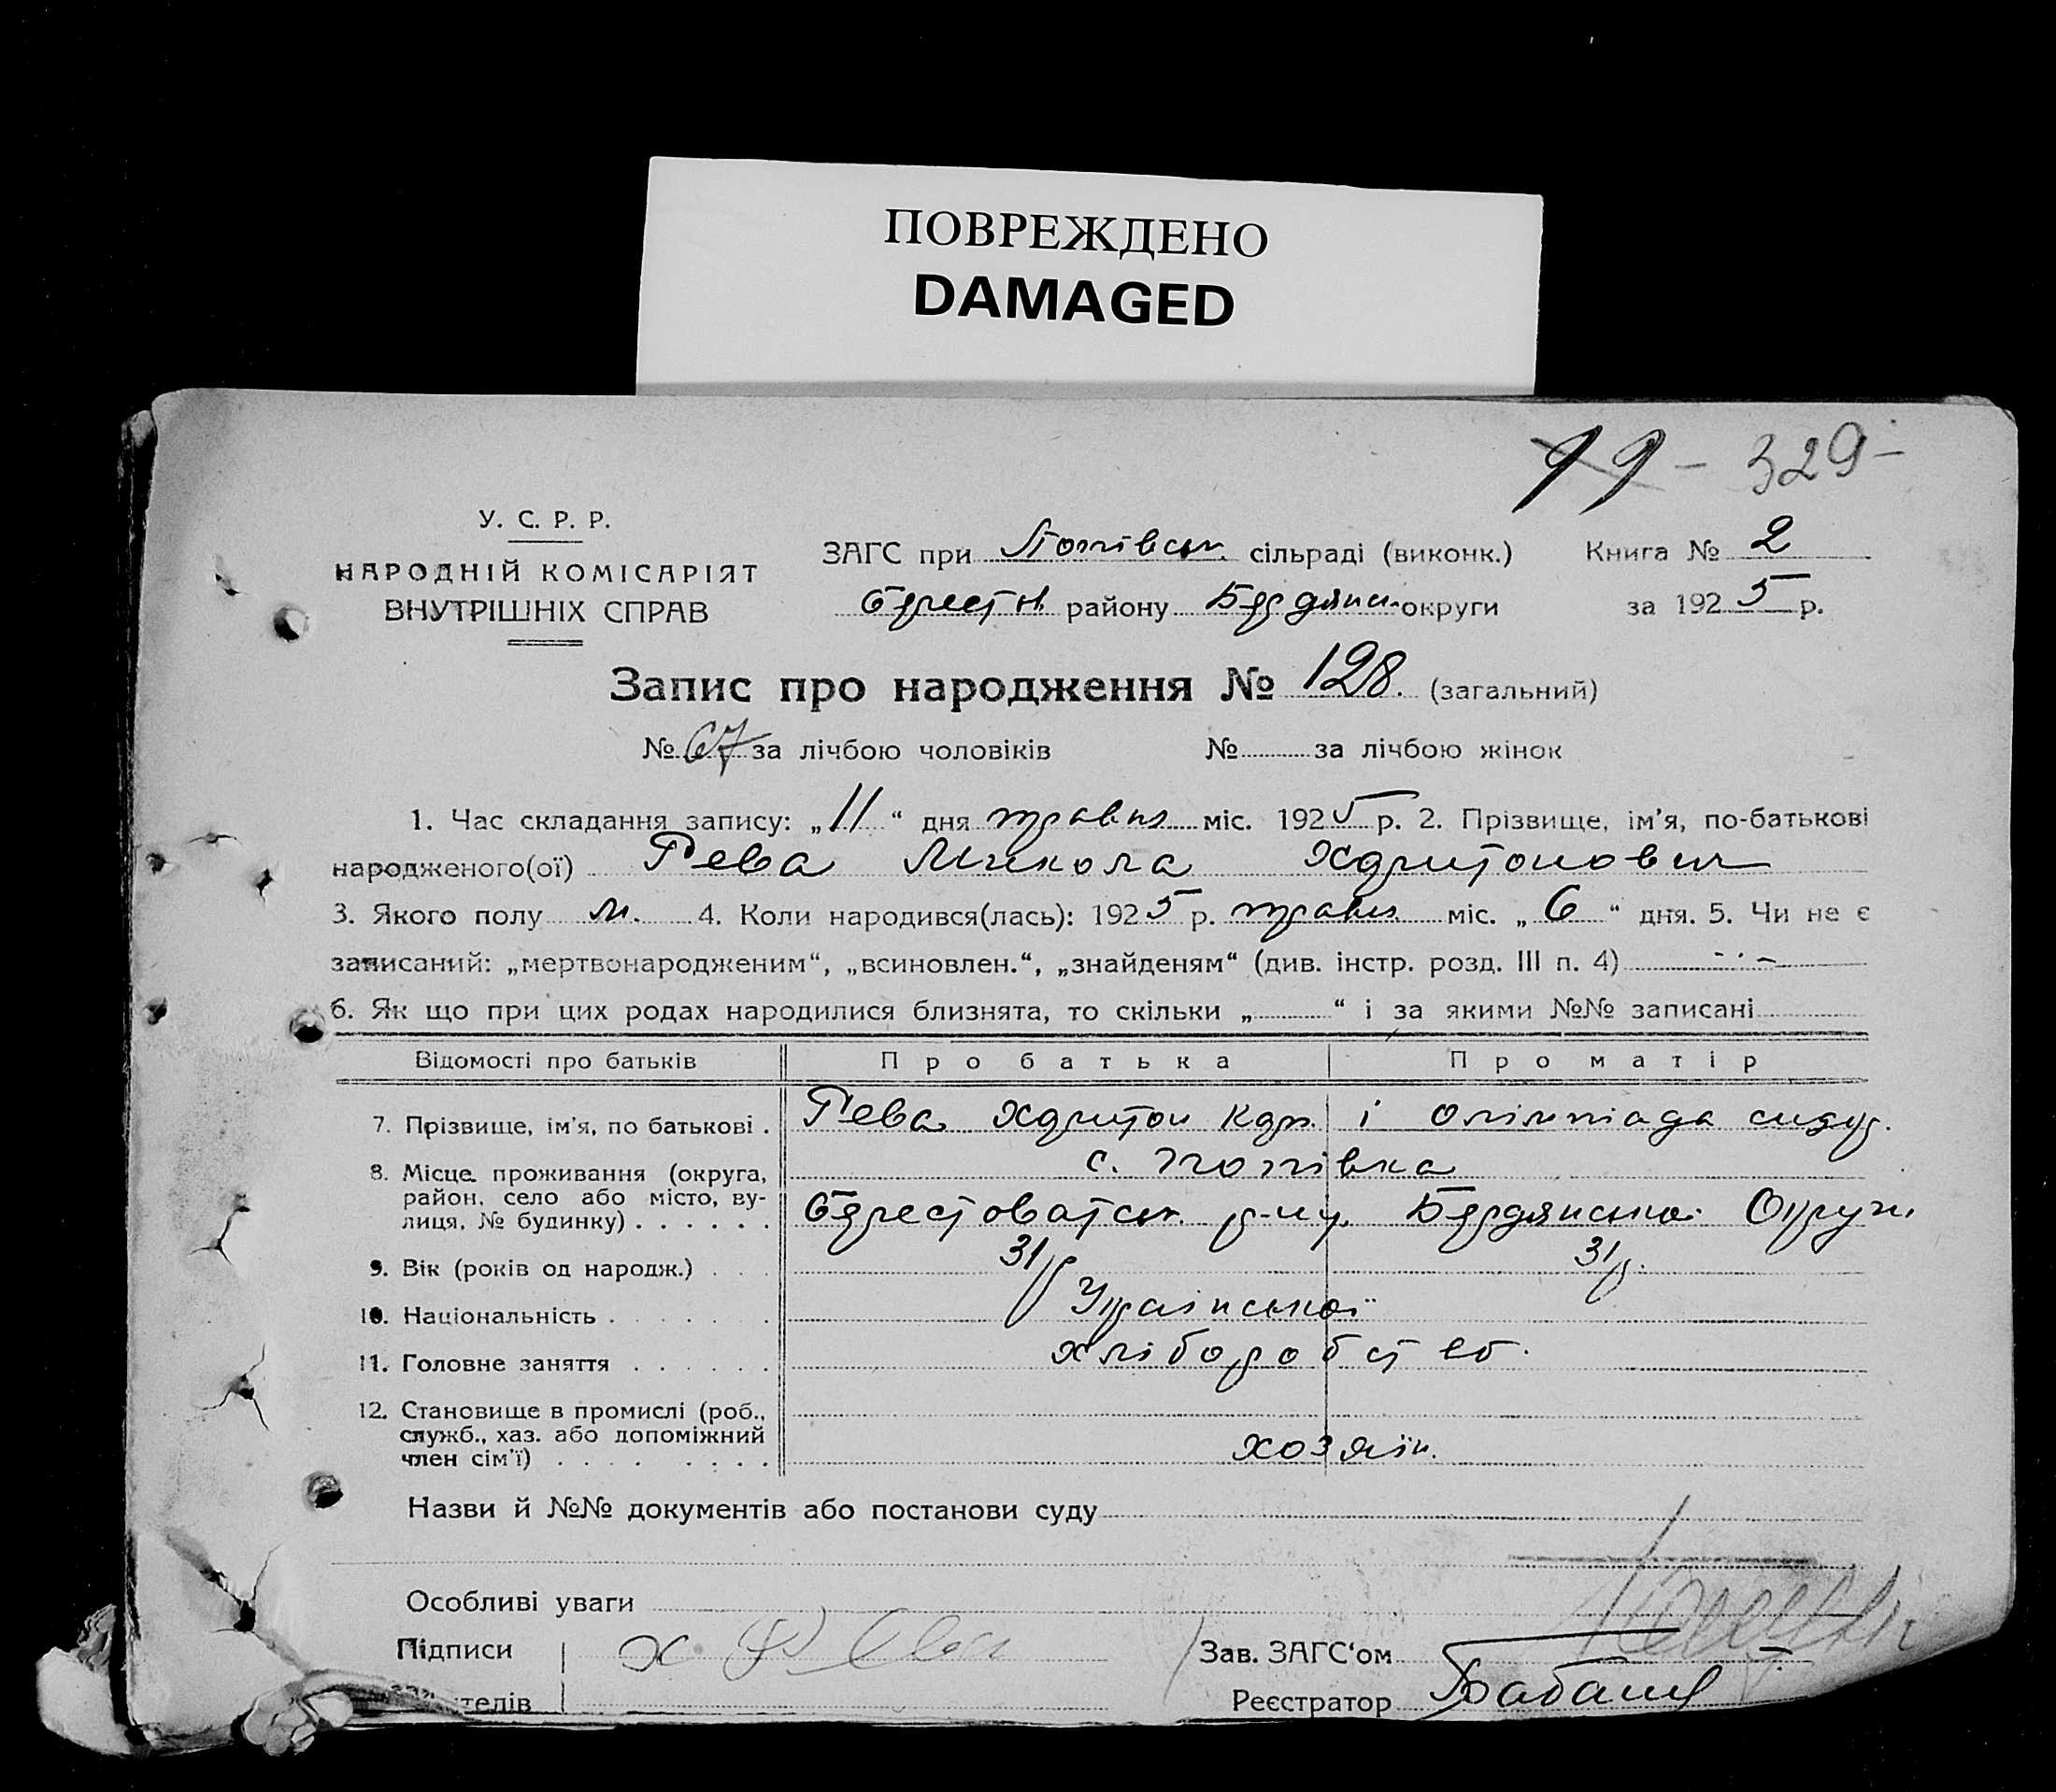 ПОВРЕЖДЕНО
DAMAGED
99 - 329 -
У. С. Р. Р.
НАРОДНІЙ КОМІСАРІЯТ
ВНУТРІШНІХ СПРАВ
ЗАГС при Попівськ. сільраді (виконк.) Книга № 2
Берестів. району Бердянськ. округи за 1925 р.
Запис про народження № 128. (загальний)
№ 67 за лічбою чоловіків № за лічбою жінок
1. Час складання запису: „11“ дня травня міс. 1925 р. 2. Прізвище, ім'я, по-батькові
народженого(ої) Рева Микола Харитонович
3. Якого полу м. 4. Коли народився(лась): 1925 р. травня міс. „6“ дня. 5. Чи не є
записаний: „мертвонародженим“, „всиновлен.“, „знайденям“ (див. інстр. розд. III п. 4)
6. Як що при цих родах народилися близнята, то скільки „ “ і за якими №№ записані
Відомості про батьків Про батька Про матір
7. Прізвище, ім'я, по батькові . Рева Харитон Кар. і Олімпіада
8. Місце проживання (округа, с. Попівка
район, село або місто, ву-
лиця, № будинку) . . . . . . Берестоватськ. р-ну. Бердянської Округи
9. Вік (років од народж.) . . . 31 р. 31 р.
10. Національність . . . . . . Української
11. Головне заняття . . . . . . хліборобств.
12. Становище в промислі (роб.,
служб., хаз. або допоміжний
член сім'ї) . . . . . . . . хозяїн.
Назви й №№ документів або постанови суду
Особливі уваги
Підписи Х. Рева Зав. ЗАГС'ом
телів Реєстратор